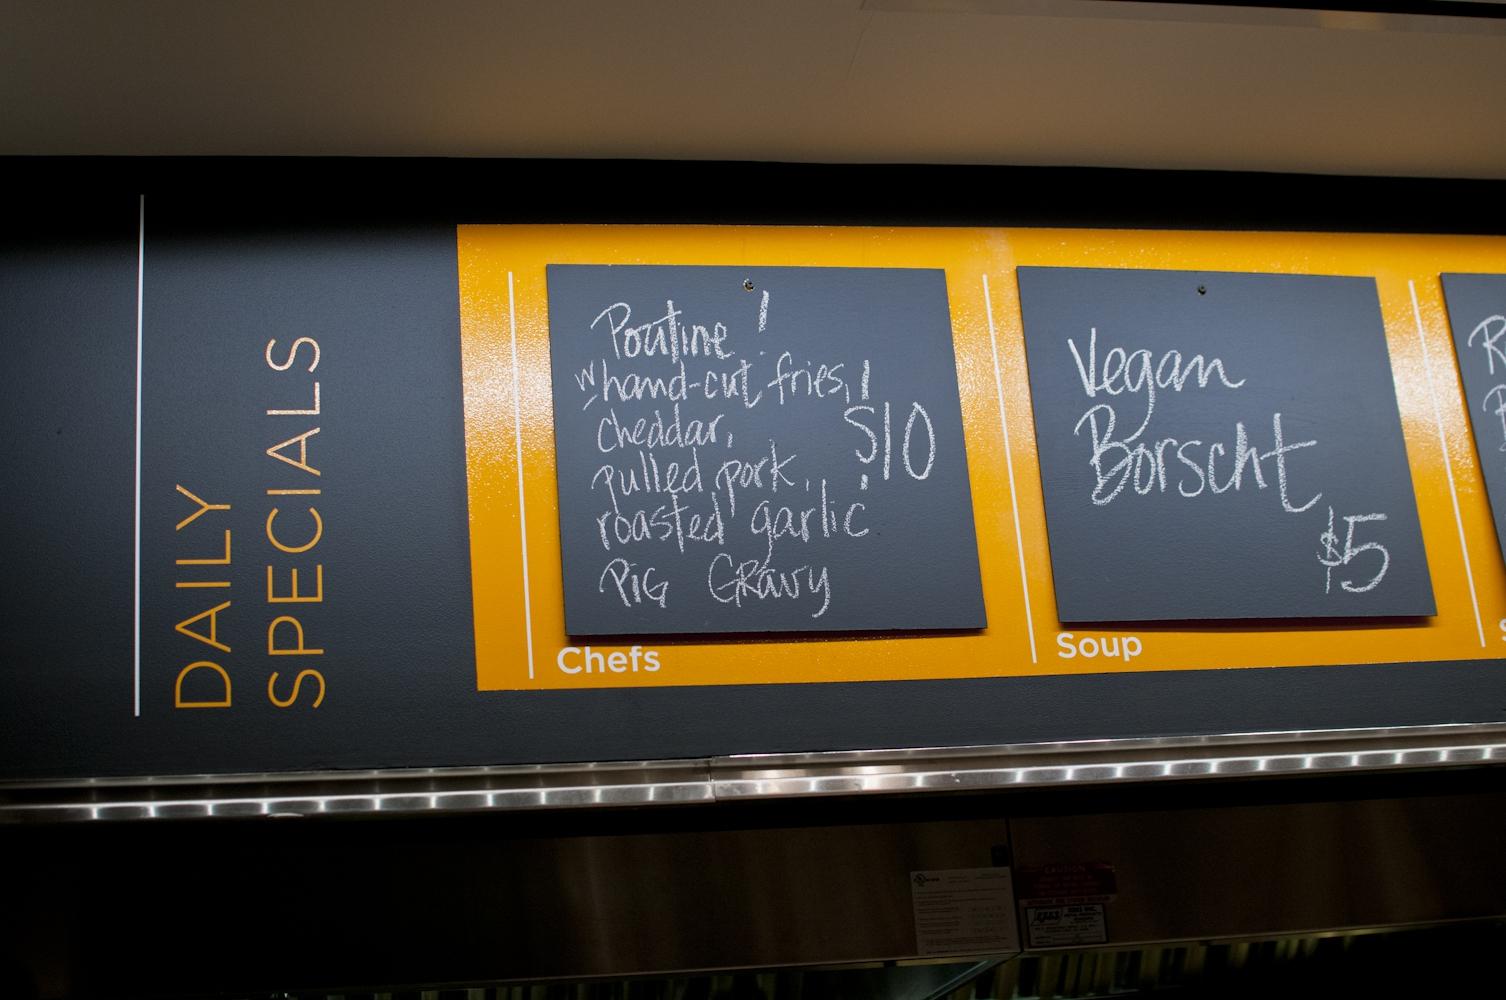 DAILY
SPECIALS
Poutine!
w/ hand-cut fries,
cheddar,
pulled pork,
roasted garlic
PiG GRavy
! $10
Chefs
Vegan
Borscht
$5
Soup
CAUTION